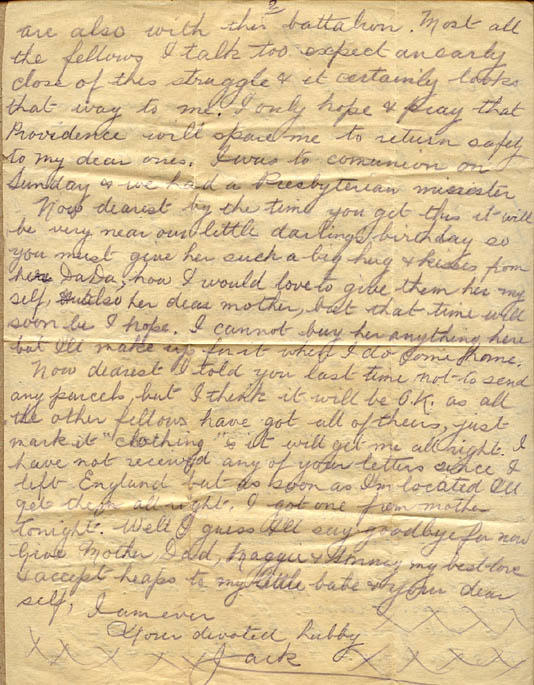 2
are also with this battalion. Most all
the fellows I talk too expect an early
close of this struggle & it certainly looks
that way to me. I only hope & pray that
Providence will spare me to return safely
to my dear ones. I was to comunion on
Sunday & we had a Presbyterian minister
Now dearest by the time you get this it will
be very near our little darlings birthday so
you must give her such a big hug & kisses from
her DaDa, how I would love to give them her my
self, also her dear mother, but that time will
soon be I hope. I cannot buy her anything here
but I'll make up for it when I do come home.
Now dearest I told you last time not to send
any parcels, but I think it will be O.K. as all
the other fellows have got all of theirs, just
mark it "clothing" & it will get me allright. I
have not received any of your letters since I
left England but as soon as I'm located I'll
get them all right. I got one from mother
tonight. Well I guess I'll say goodbye for now
Give Mother, Dad, Maggie & my best love
& accept heaps to my little babe & your dear
self, I am ever
Your devoted hubby
Jack
X X X X X X X X